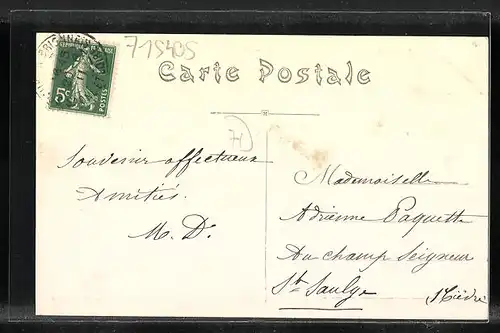 715405
5c
POSTES
Carte Postale
Souvenir affectueux
Amitiés.
M. D.
Mademoiselle
Adrienne Paquette
Au champ Seigneur
St Saulge
(Nièvre)